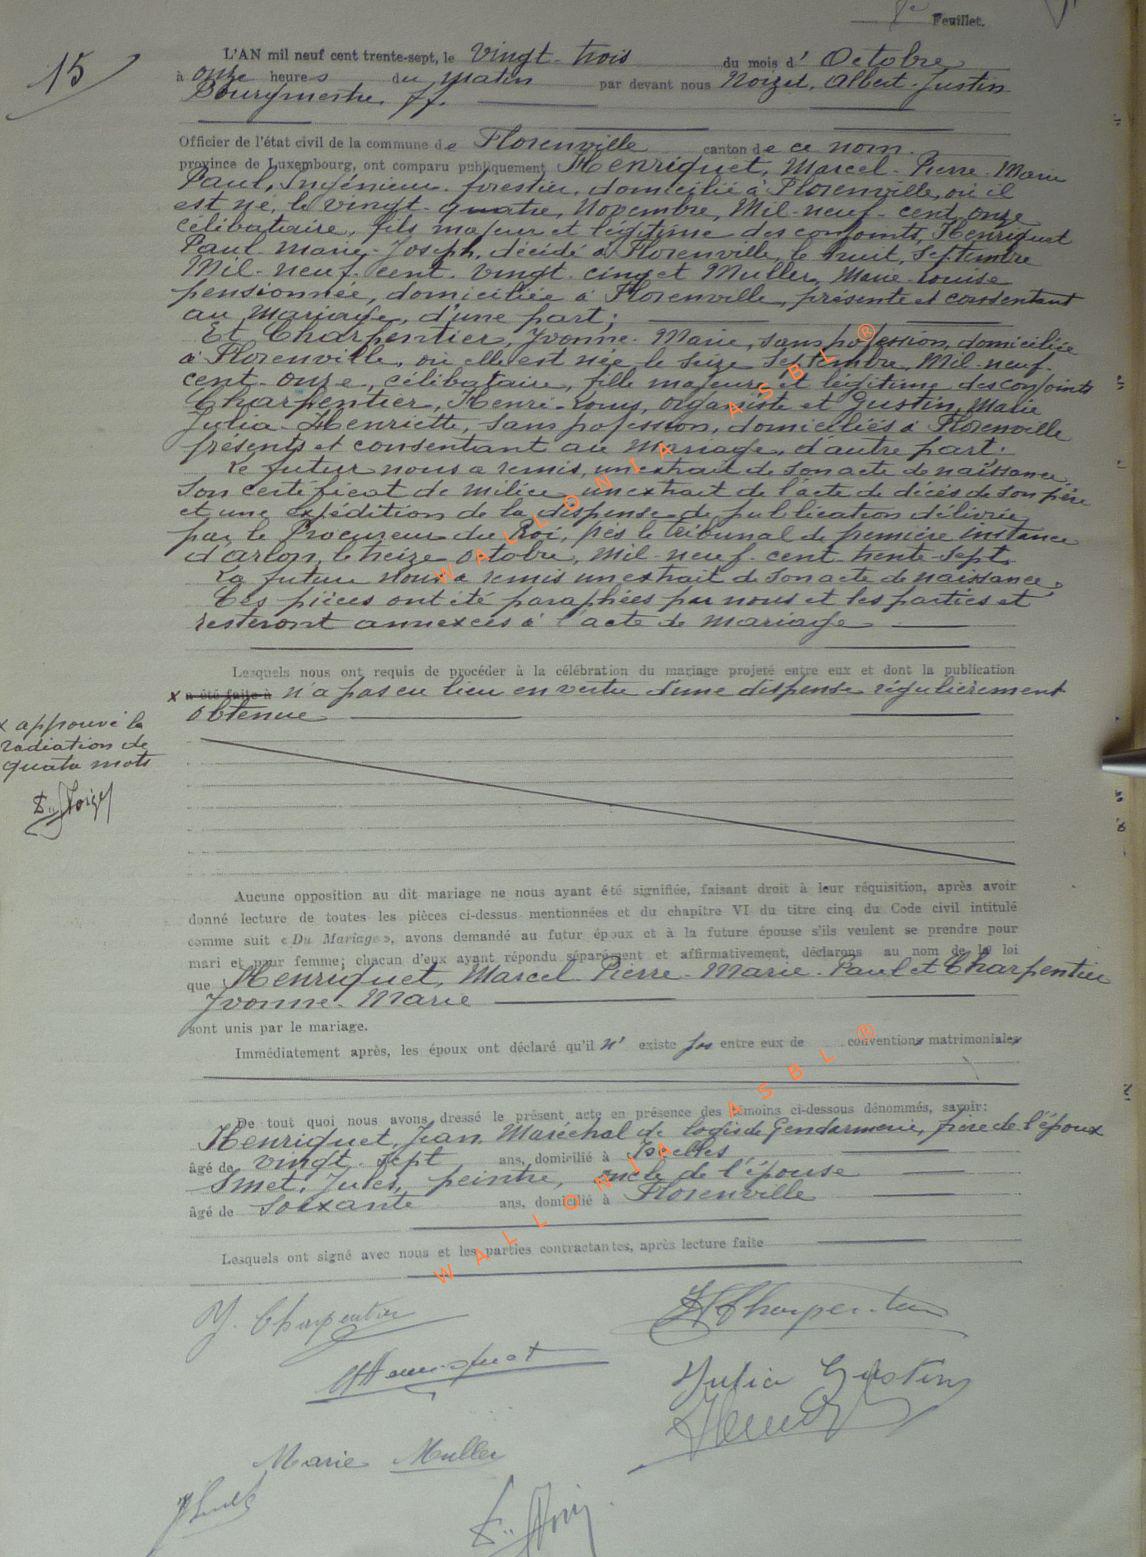 Feuillet.
15
L'AN mil neuf cent trente-sept, le vingt-trois du mois d' Octobre
à onze heures du matin par devant nous Noizet, Albert-Justin
Bourgmestre, ff.
Officier de l'état civil de la commune de Florenville canton de ce nom.
province de Luxembourg, ont comparu publiquement Henriquet, Marcel-Pierre-Marie
Paul, Ingénieur-forestier, domicilié à Florenville, où il
est né, le vingt-quatre, Novembre, Mil-neuf-cent onze
célibataire, fils majeur et légitime des conjoints, Henriquet
Paul-Marie-Joseph, décédé à Florenville, le huit, Septembre
Mil-neuf-cent-vingt-cinq et Muller, Marie-Louise
pensionnée, domiciliée à Florenville, présente et consentant
au Mariage, d'une part;
Et Charpentier, Yvonne-Marie, sans profession, domiciliée
à Florenville, où elle est née le seize Septembre, Mil-neuf-
cent-onze, célibataire, fille majeure et légitime des conjoints
Charpentier, Henri-Louis, organiste et Gustin, Marie
Julia-Henriette, sans profession, domiciliés à Florenville
présents et consentant au Mariage, d'autre part;
Le futur nous a remis, un extrait de son acte de naissance,
son certificat de milice, un extrait de l'acte de décès de son père
et une expédition de la dispense de publication délivrée
par le Procureur du Roi, près le tribunal de première instance
d'Arlon, le treize octobre, Mil-neuf-cent-trente-sept.
La future nous a remis un extrait de son acte de naissance.
Ces pièces ont été paraphées par nous et les parties et
resteront annexées à l'acte de Mariage
Lesquels nous ont requis de procéder à la célébration du mariage projeté entre eux et dont la publication
x a été faite à n'a pas eu lieu en vertu d'une dispense régulièrement
obtenue
x approuvé la
radiation de
quatre mots
Aucune opposition au dit mariage ne nous ayant été signifiée, faisant droit à leur réquisition, après avoir
donné lecture de toutes les pièces ci-dessus mentionnées et du chapitre VI du titre cinq du Code civil intitulé
comme suit « Du Mariage », avons demandé au futur époux et à la future épouse s'ils veulent se prendre pour
mari et pour femme; chacun d'eux ayant répondu séparément et affirmativement, déclarons au nom de la loi
que Henriquet, Marcel-Pierre-Marie-Paul et Charpentier
Yvonne-Marie
sont unis par le mariage.
Immédiatement après, les époux ont déclaré qu'il n' existe pas entre eux de conventions matrimoniales
De tout quoi nous avons dressé le présent acte en présence des témoins ci-dessous dénommés, savoir:
Henriquet, Jean, Maréchal de logis de Gendarmerie, frère de l'époux
âgé de vingt-sept ans, domicilié à Ixelles
Smet, Jules, peintre, oncle de l'épouse
âgé de Soixante ans, domicilié à Florenville
Lesquels ont signé avec nous et les parties contractantes, après lecture faite
Y. Charpentier
H Charpentier
MHenriquet
Julia Gustin
Marie Muller
WALLONIA ASBL ®
WALLONIA ASBL ®